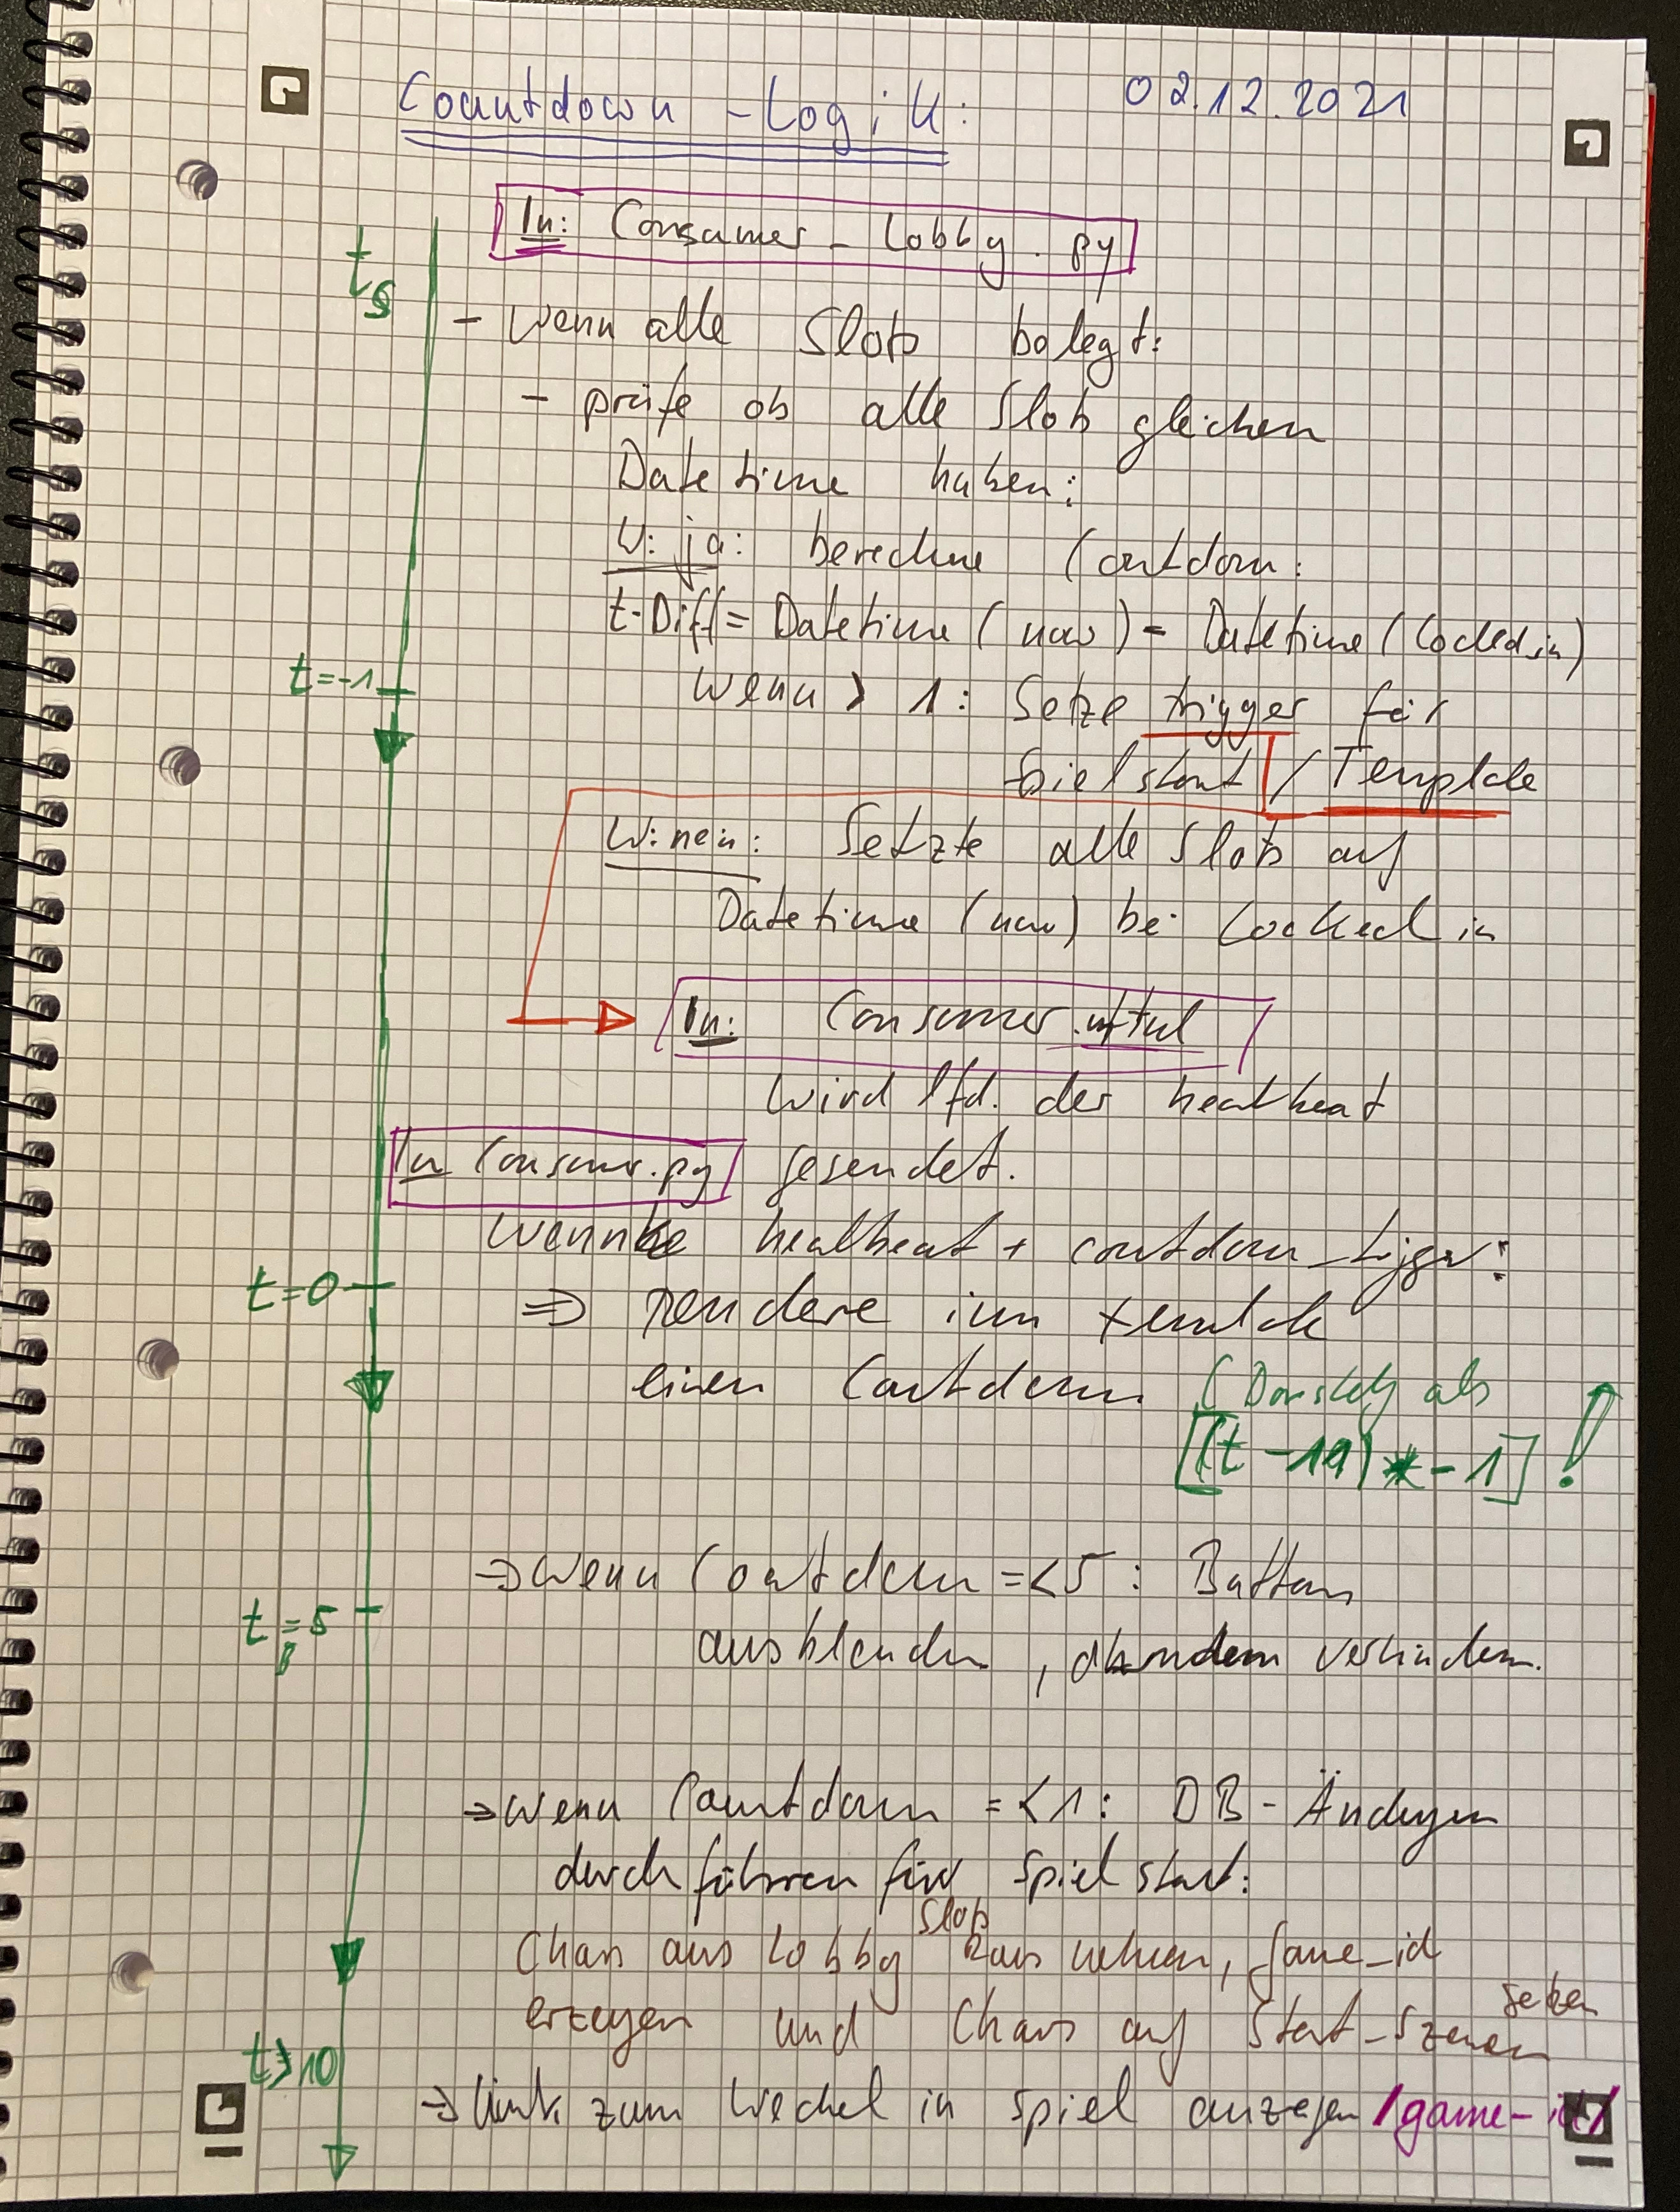 Countdown - Logik: 02.12.2021
In: Consumer_Lobby.py
ts
- Wenn alle Slots belegt:
- prüfe ob alle Slots gleichen
Datetime haben:
W. ja: berechne Countdown:
t-Diff = Datetime (now) - Datetime (locked_in)
t=-1
wenn > 1: Setze trigger für
Spielstart / Template
W. nein: Setzte alle Slots auf
Datetime (now) bei Locked in
In: Consumer
wird lfd. der heatbeat
In Consumer.py gesendet.
heatbeat + countdown_
t=0
⇒ rendere im
einen Countdown (
[(t - 11) * -1] !
⇒ wenn Countdown =<5: Button
t=5
ausblenden, verhindern.
⇒ wenn Countdown =<1: DB-Änderungen
durchführen für Spielstart:
Slots
Chars aus Lobby Raus nehmen, game_id
setzen
erzeugen und Chars auf Start-Szenen
t≥10
⇒ Link zum Wechsel in Spiel anzeigen /game-id/